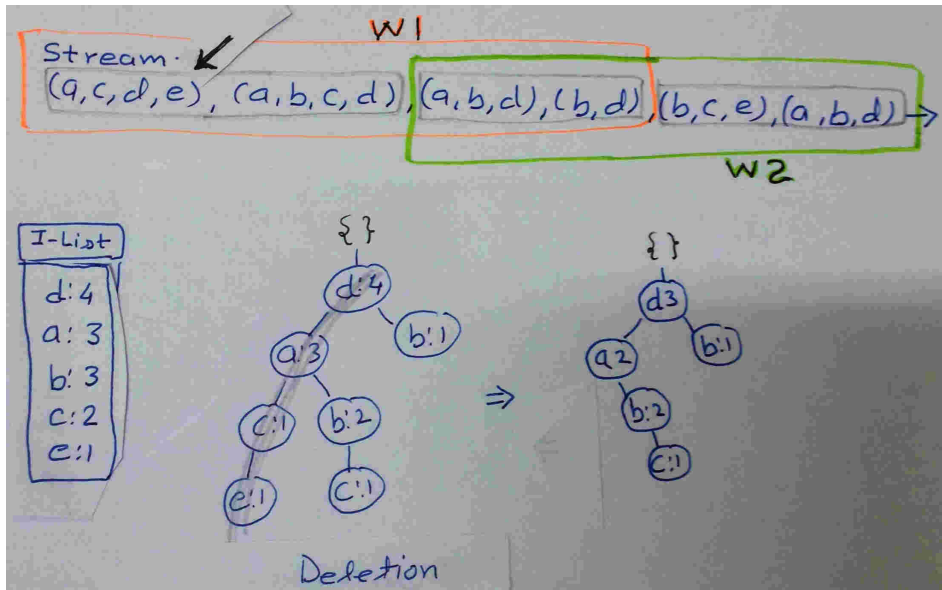 W1
Stream.
(a,c,d,e), (a,b,c,d), (a,b,d), (b,d), (b,c,e), (a,b,d)
W2
I-List
d:4
a:3
b:3
c:2
e:1
{}
d:4
a:3
b:1
c:1
b:2
e:1
c:1
⇒
{}
d3
a2
b:1
b:2
c:1
Deletion